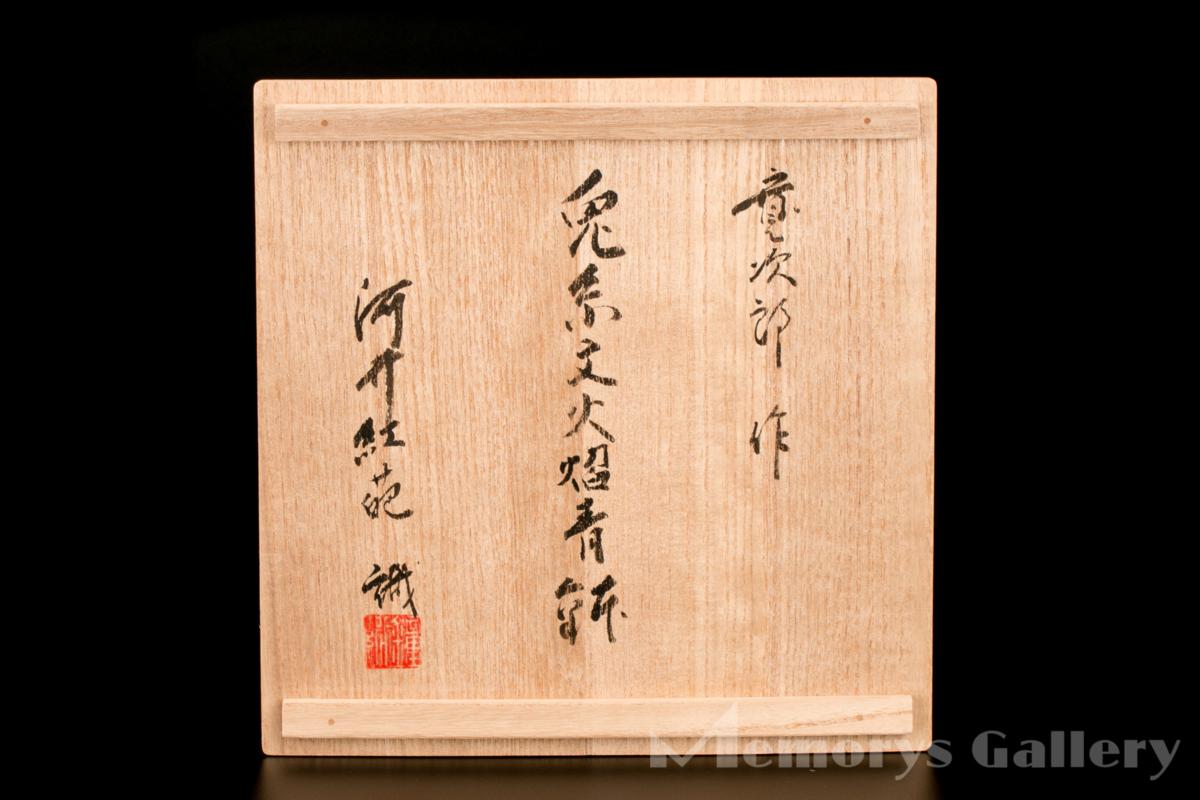 寛次郎 作
兎糸文火焰青鉢
河井紅葩 識
Memorys Gallery